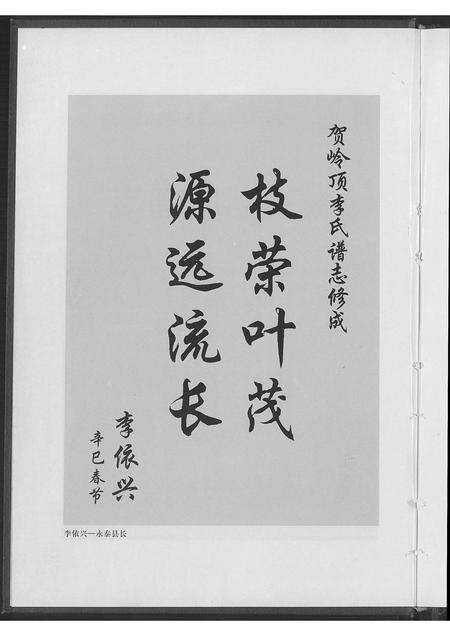 贺岭顶李氏谱志修成
枝荣叶茂
源远流长
李依兴
辛巳春节
李依兴—永泰县长